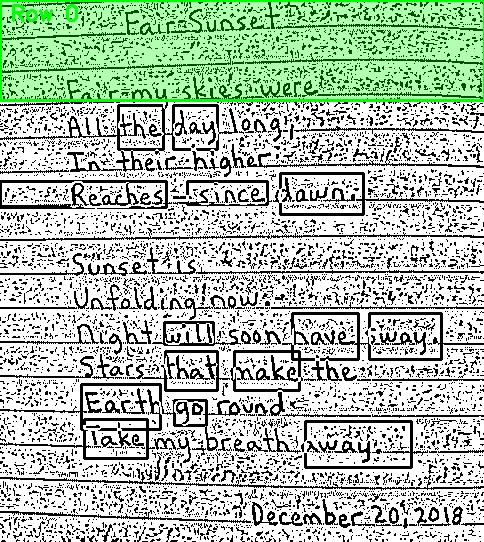 Row 0
Fair Sunset
Fair my skies were
All the day long,
In their higher
Reaches - since dawn.
Sunset is
Unfolding now.
Night will soon have sway.
Stars that make the
Earth go round
Take my breath away.
December 20, 2018